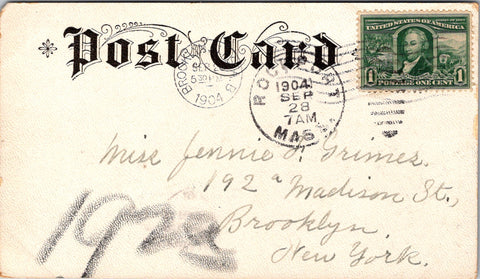 Post Card
UNITED STATES OF AMERICA
1 1
POSTAGE ONE CENT
BROOKLYN
1904
ROCKPORT
1904
SEP
28
7AM
MASS.
Miss Jennie Grimes
192 a Madison St.,
Brooklyn,
New York.
192